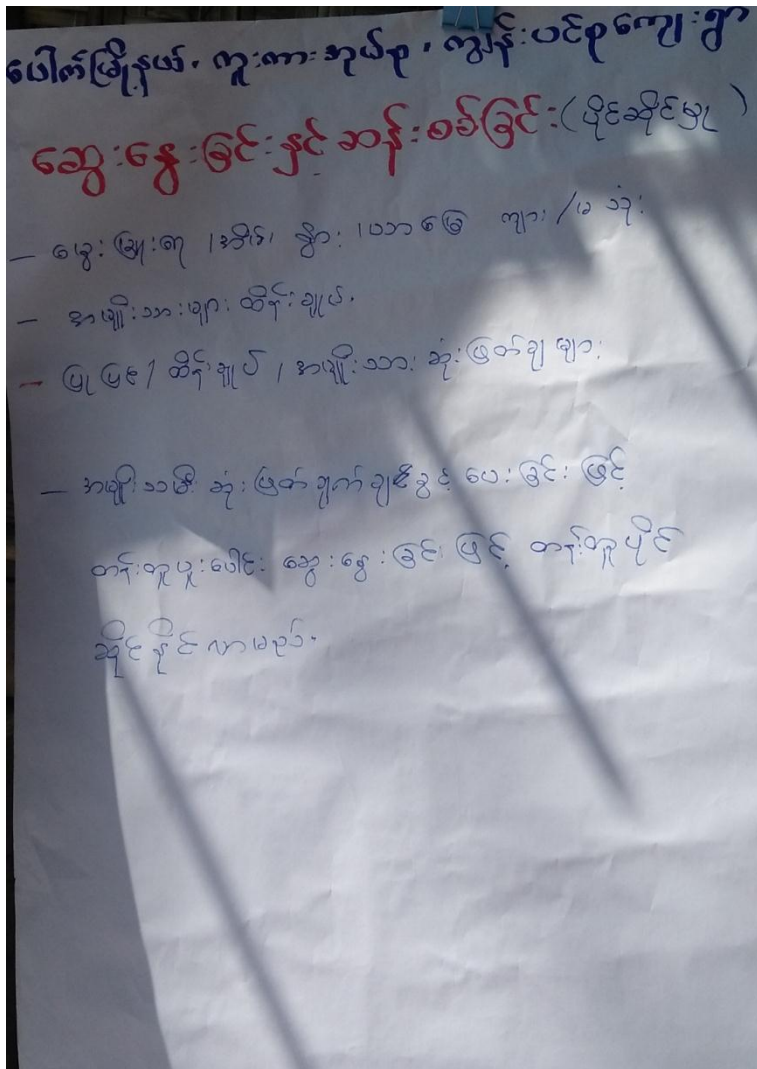 ပေါက်မြို့နယ်၊ ကူးကားအုပ်စု၊ ကျွန်းပင်စုကျေးရွာ
ဆွေးနွေးခြင်းနှင့်ဆန်းစစ်ခြင်း(ပိုင်ဆိုင်မှု)
– မွေးမြူရေး / အိမ်၊ နွား / ယာမြေ ကျား/မ သုံး
– အမျိုးသားများ ထိန်းချုပ်.
– ပြုပြင်/ ထိန်းချုပ် / အမျိုးသား ဆုံးဖြတ်ချများ
– အမျိုးသမီး ဆုံးဖြတ်ချက်ချခွင့် ပေးခြင်းဖြင့်
တန်းတူပူးပေါင်း ဆွေးနွေးခြင်းဖြင့် တန်းတူပိုင်
ဆိုင်နိုင်လာမည်.